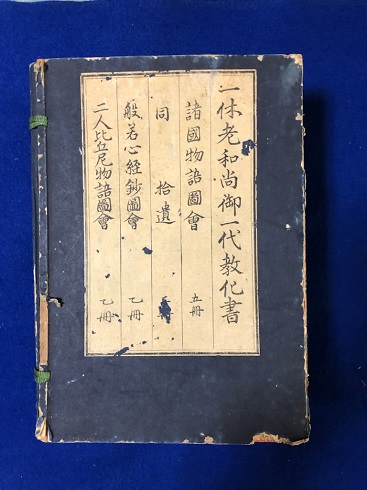 一休老和尚御一代教化書
諸國物語圖會 五冊
同 拾遺 冊
般若心經鈔圖會 乙冊
二人比丘尼物語圖會 乙冊